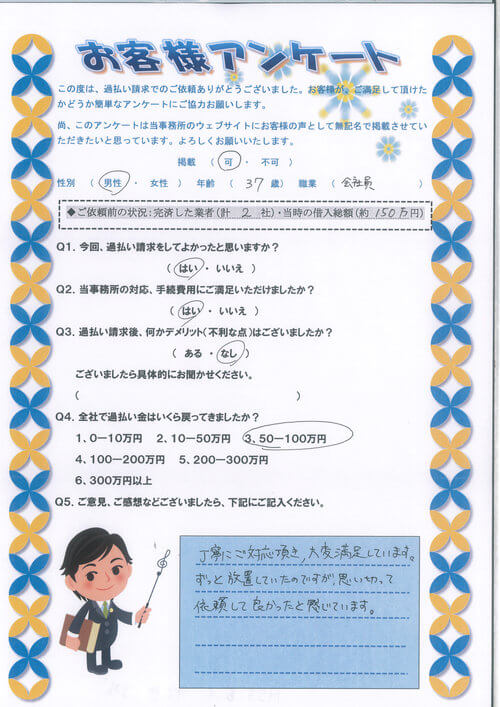 お客様アンケート
この度は、過払い請求でのご依頼ありがとうございました。お客様が、ご満足して頂けた
かどうか簡単なアンケートにご協力お願いします。
尚、このアンケートは当事務所のウェブサイトにお客様の声として無記名で掲載させてい
ただきたいと思っています。よろしくお願いいたします。
掲載 ( 可 ・ 不可 )
性別 ( 男性 ・ 女性 ) 年齢 ( 37 歳) 職業 ( 会社員 )
◆ご依頼前の状況:完済した業者(計 2 社)・当時の借入総額(約 150万円)
Q1. 今回、過払い請求をしてよかったと思いますか?
( はい ・ いいえ )
Q2. 当事務所の対応、手続費用にご満足いただけましたか?
( はい ・ いいえ )
Q3. 過払い請求後、何かデメリット(不利な点)はございましたか?
( ある ・ なし )
ございましたら具体的にお聞かせください。
( )
Q4. 全社で過払い金はいくら戻ってきましたか?
1、0-10万円 2、10-50万円 3、50-100万円
4、100-200万円 5、200-300万円
6、300万円以上
Q5. ご意見、ご感想などございましたら、下記にご記入ください。
丁寧にご対応頂き、大変満足しています。
ずっと放置していたのですが、思い切って
依頼して良かったと感じています。